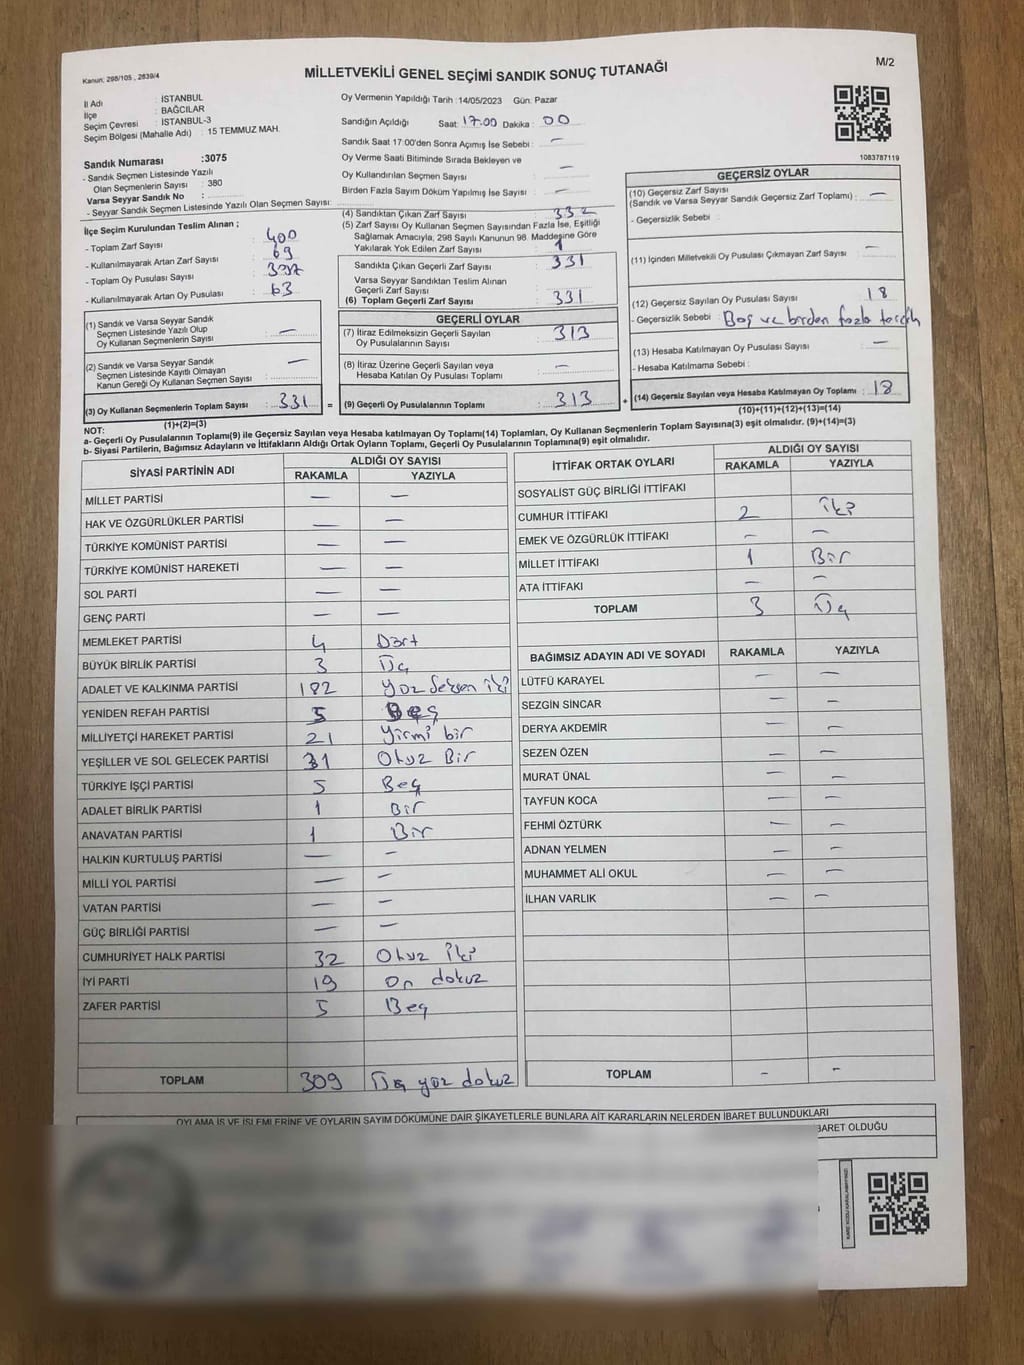 Kanun: 298/105 , 2839/4
MİLLETVEKİLİ GENEL SEÇİMİ SANDIK SONUÇ TUTANAĞI
M/2
İl Adı : İSTANBUL
İlçe : BAĞCILAR
Seçim Çevresi : İSTANBUL-3
Seçim Bölgesi (Mahalle Adı) : 15 TEMMUZ MAH.
Sandık Numarası :3075
- Sandık Seçmen Listesinde Yazılı
Olan Seçmenlerin Sayısı : 380
Varsa Seyyar Sandık No :
- Seyyar Sandık Seçmen Listesinde Yazılı Olan Seçmen Sayısı:
Oy Vermenin Yapıldığı Tarih :14/05/2023 Gün: Pazar
Sandığın Açıldığı Saat: 17.00 Dakika : 00
Sandık Saat 17:00'den Sonra Açımış İse Sebebi : —
Oy Verme Saati Bitiminde Sırada Bekleyen ve
Oy Kullandırılan Seçmen Sayısı : —
Birden Fazla Sayım Döküm Yapılmış İse Sayısı : —
1083787119
İlçe Seçim Kurulundan Teslim Alınan ;
- Toplam Zarf Sayısı : 400
- Kullanılmayarak Artan Zarf Sayısı : 69
- Toplam Oy Pusulası Sayısı :
- Kullanılmayarak Artan Oy Pusulası : 63
(1) Sandık ve Varsa Seyyar Sandık
Seçmen Listesinde Yazılı Olup
Oy Kullanan Seçmenlerin Sayısı : —
(2) Sandık ve Varsa Seyyar Sandık
Seçmen Listesinde Kayıtlı Olmayan
Kanun Gereği Oy Kullanan Seçmen Sayısı : —
(3) Oy Kullanan Seçmenlerin Toplam Sayısı : 331 =
(1)+(2)=(3)
(4) Sandıktan Çıkan Zarf Sayısı : 332
(5) Zarf Sayısı Oy Kullanan Seçmen Sayısından Fazla İse, Eşitliği
Sağlamak Amacıyla, 298 Sayılı Kanunun 98. Maddesine Göre
Yakılarak Yok Edilen Zarf Sayısı : 1
Sandıkta Çıkan Geçerli Zarf Sayısı : 331
Varsa Seyyar Sandıktan Teslim Alınan
Geçerli Zarf Sayısı :
(6) Toplam Geçerli Zarf Sayısı : 331
GEÇERLİ OYLAR
(7) İtiraz Edilmeksizin Geçerli Sayılan
Oy Pusulalarının Sayısı : 313
(8) İtiraz Üzerine Geçerli Sayılan veya
Hesaba Katılan Oy Pusulası Toplamı : —
(9) Geçerli Oy Pusulalarının Toplamı : 313 +
GEÇERSİZ OYLAR
(10) Geçersiz Zarf Sayısı
(Sandık ve Varsa Seyyar Sandık Geçersiz Zarf Toplamı) : —
- Geçersizlik Sebebi :
(11) İçinden Milletvekili Oy Pusulası Çıkmayan Zarf Sayısı : —
(12) Geçersiz Sayılan Oy Pusulası Sayısı : 18
- Geçersizlik Sebebi : Boş ve birden fazla tercih
(13) Hesaba Katılmayan Oy Pusulası Sayısı : —
- Hesaba Katılmama Sebebi :
(14) Geçersiz Sayılan veya Hesaba Katılmayan Oy Toplamı : 18
(10)+(11)+(12)+(13)=(14)
NOT:
a- Geçerli Oy Pusulalarının Toplamı(9) ile Geçersiz Sayılan veya Hesaba katılmayan Oy Toplamı(14) Toplamları, Oy Kullanan Seçmenlerin Toplam Sayısına(3) eşit olmalıdır. (9)+(14)=(3)
b- Siyasi Partilerin, Bağımsız Adayların ve İttifakların Aldığı Ortak Oyların Toplamı, Geçerli Oy Pusulalarının Toplamına(9) eşit olmalıdır.
SİYASİ PARTİNİN ADI ALDIĞI OY SAYISI
RAKAMLA YAZIYLA
MİLLET PARTİSİ — —
HAK VE ÖZGÜRLÜKLER PARTİSİ — —
TÜRKİYE KOMÜNİST PARTİSİ — —
TÜRKİYE KOMÜNİST HAREKETİ — —
SOL PARTİ — —
GENÇ PARTİ — —
MEMLEKET PARTİSİ 4 Dört
BÜYÜK BİRLİK PARTİSİ 3 Üç
ADALET VE KALKINMA PARTİSİ 182 yüz seksen iki
YENİDEN REFAH PARTİSİ 5 Beş
MİLLİYETÇİ HAREKET PARTİSİ 21 yirmi bir
YEŞİLLER VE SOL GELECEK PARTİSİ 31 Otuz Bir
TÜRKİYE İŞÇİ PARTİSİ 5 Beş
ADALET BİRLİK PARTİSİ 1 Bir
ANAVATAN PARTİSİ 1 Bir
HALKIN KURTULUŞ PARTİSİ — —
MİLLİ YOL PARTİSİ — —
VATAN PARTİSİ — —
GÜÇ BİRLİĞİ PARTİSİ — —
CUMHURİYET HALK PARTİSİ 32 Otuz İki
İYİ PARTİ 19 On dokuz
ZAFER PARTİSİ 5 Beş
TOPLAM 309 Üç yüz dokuz
İTTİFAK ORTAK OYLARI ALDIĞI OY SAYISI
RAKAMLA YAZIYLA
SOSYALİST GÜÇ BİRLİĞİ İTTİFAKI
CUMHUR İTTİFAKI 2 İki
EMEK VE ÖZGÜRLÜK İTTİFAKI — —
MİLLET İTTİFAKI 1 Bir
ATA İTTİFAKI — —
TOPLAM 3 Üç
BAĞIMSIZ ADAYIN ADI VE SOYADI RAKAMLA YAZIYLA
LÜTFÜ KARAYEL — —
SEZGİN SİNCAR — —
DERYA AKDEMİR — —
SEZEN ÖZEN — —
MURAT ÜNAL — —
TAYFUN KOCA — —
FEHMİ ÖZTÜRK — —
ADNAN YELMEN — —
MUHAMMET ALİ OKUL — —
İLHAN VARLIK — —
TOPLAM — —
OYLAMA İŞ VE İŞLEMLERİNE VE OYLARIN SAYIM DÖKÜMÜNE DAİR ŞİKAYETLERLE BUNLARA AİT KARARLARIN NELERDEN İBARET BULUNDUKLARI
BARET OLDUĞU